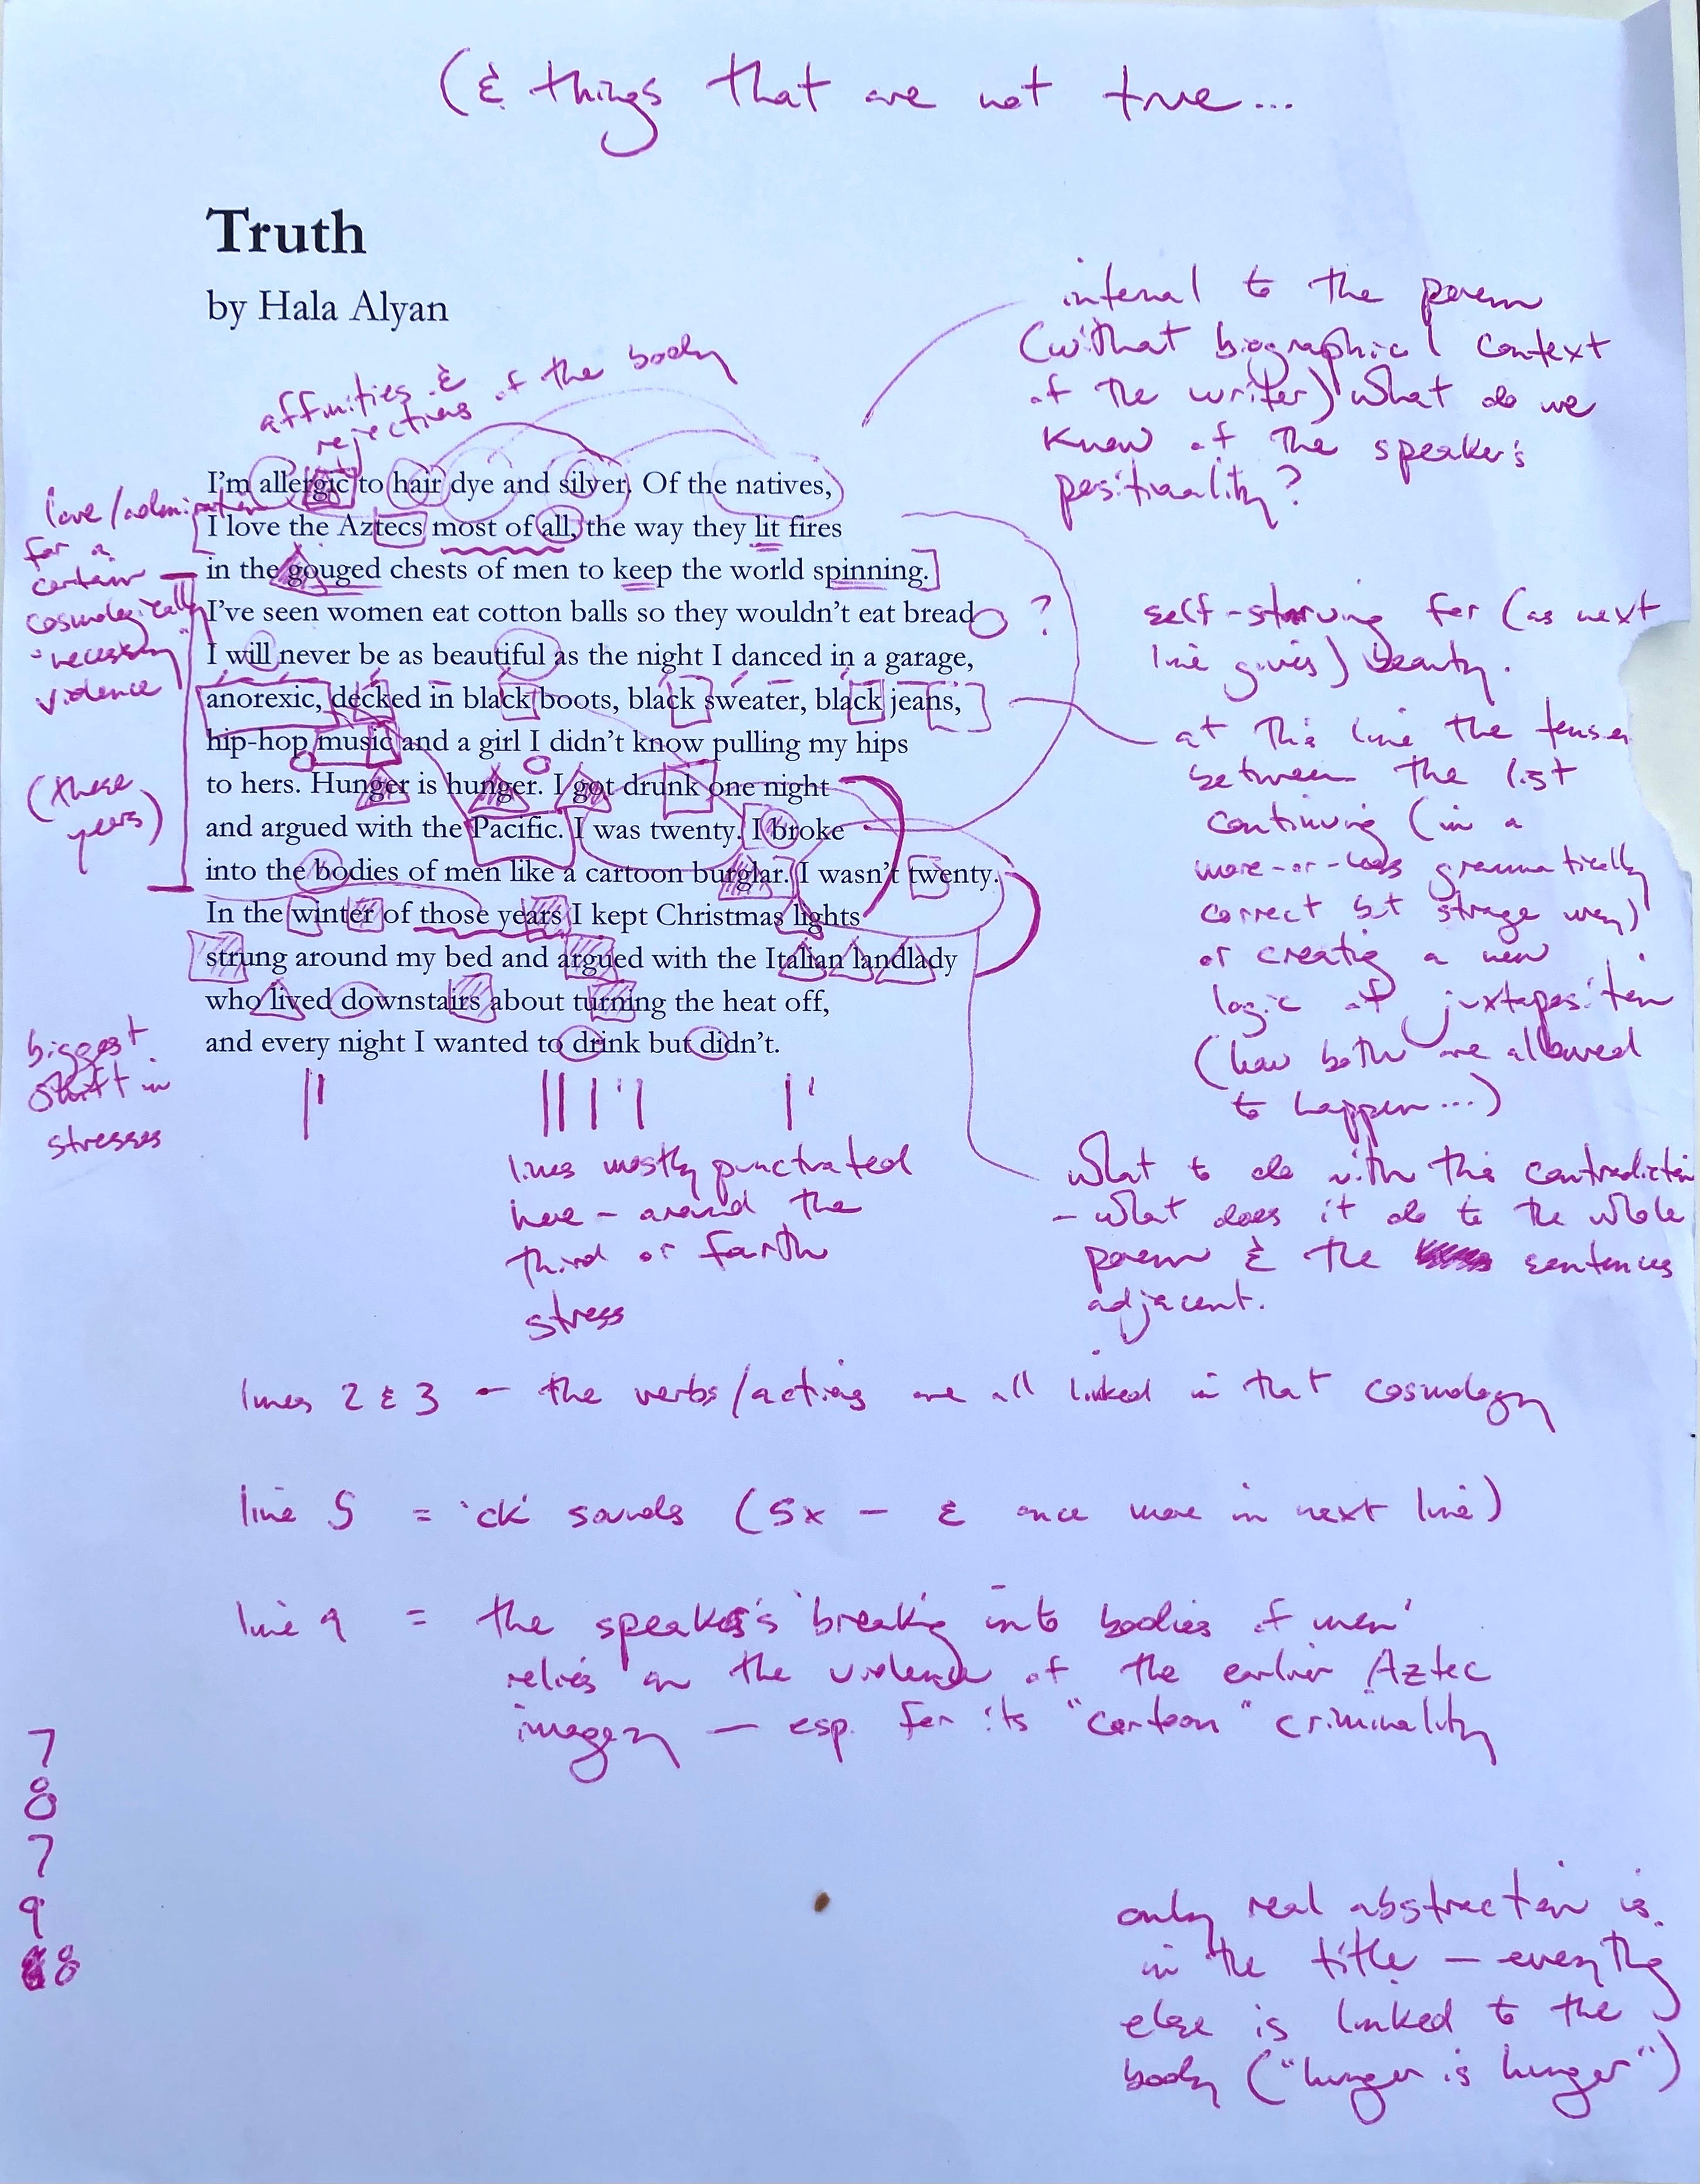 (& things that are not true...
Truth
by Hala Alyan
affinities &
rejections of the body
internal to the poem
(without biographical context
of the writer) what do we
know of the speaker's
positionality?
I'm allergic to hair dye and silver. Of the natives,
I love the Aztecs most of all, the way they lit fires
in the gouged chests of men to keep the world spinning.
I've seen women eat cotton balls so they wouldn't eat bread
I will never be as beautiful as the night I danced in a garage,
anorexic, decked in black boots, black sweater, black jeans,
hip-hop music and a girl I didn't know pulling my hips
to hers. Hunger is hunger. I got drunk one night
and argued with the Pacific. I was twenty. I broke
into the bodies of men like a cartoon burglar. I wasn't twenty.
In the winter of those years I kept Christmas lights
strung around my bed and argued with the Italian landlady
who lived downstairs about turning the heat off,
and every night I wanted to drink but didn't.
love/admiration
for a
certain
cosmologically
"necessary"
violence
(these
years)
biggest
shift in
stresses
?
self-starving for (as next
line gives) beauty.
at this line the tenses
between the list
continuing (in a
more-or-less grammatically
correct but strange way)
or creating a new
logic of juxtaposition
(how both are allowed
to happen...)
lines mostly punctuated
here - around the
third or fourth
stress
what to do with this contradiction
- what does it do to the whole
poem & the sentences
adjacent.
lines 2 & 3 - the verbs/actions are all linked in that cosmology
line 5 = 'ck' sounds (5x - & once more in next line)
line 9 = the speaker's 'breaking into bodies of men'
relies on the violence of the earlier Aztec
imagery - esp. for its "cartoon" criminality
7
8
7
9
8
only real abstraction is
in the title - everything
else is linked to the
body ("hunger is hunger")